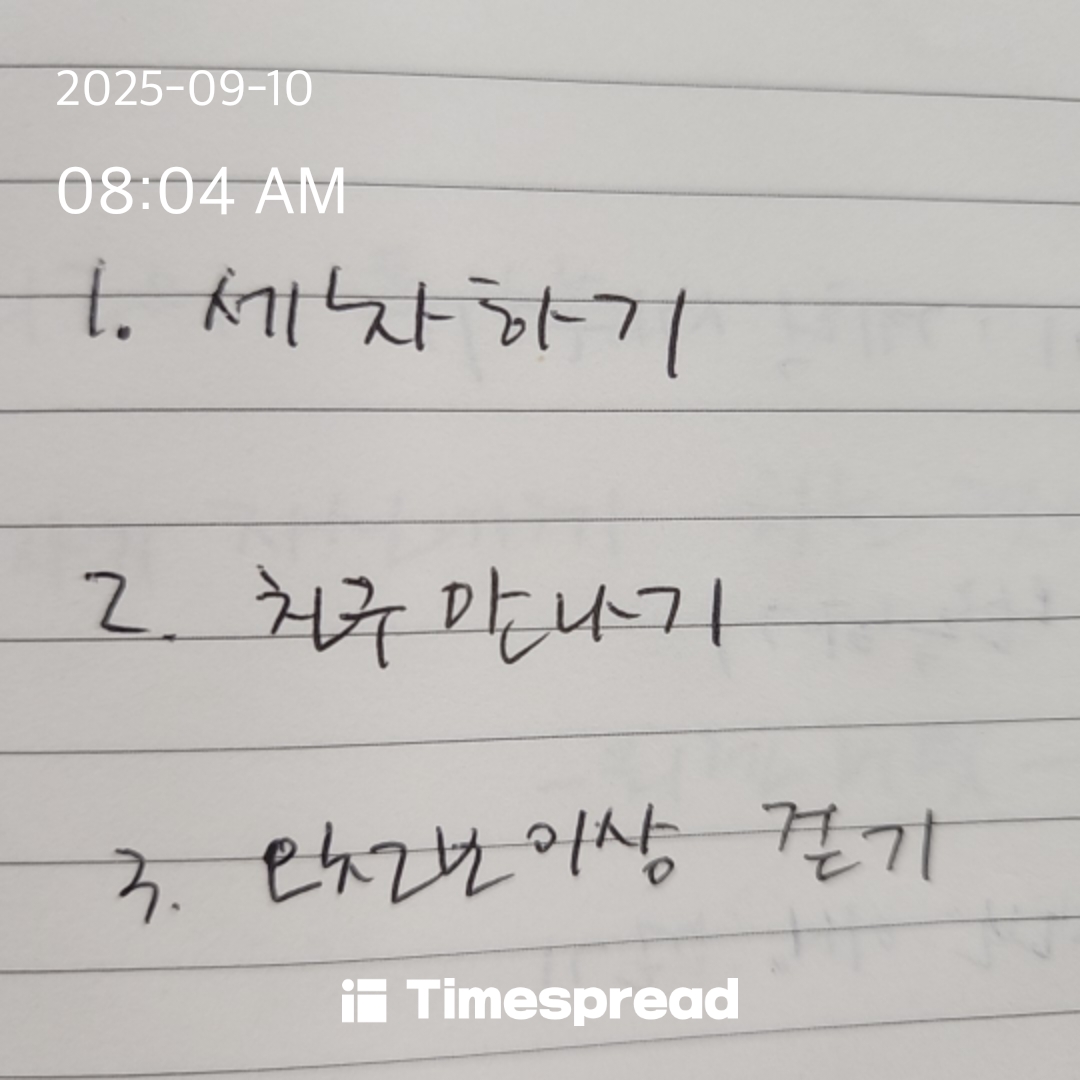 2025-09-10
08:04 AM
1. 세차하기
2. 친구 만나기
3. 이상 걷기
Timespread